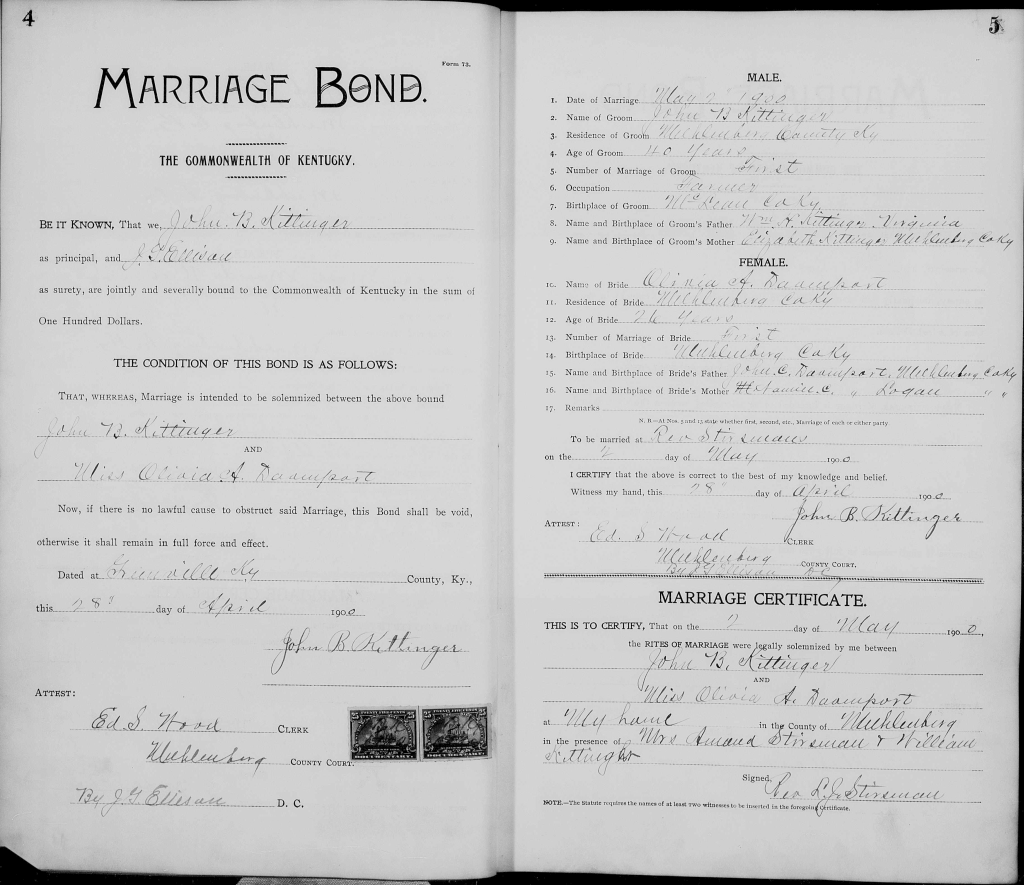 4
Form 73.
MARRIAGE BOND.
THE COMMONWEALTH OF KENTUCKY.
BE IT KNOWN, That we, John B. Kittinger
as principal, and J. G. Ellison
as surety, are jointly and severally bound to the Commonwealth of Kentucky in the sum of
One Hundred Dollars.
THE CONDITION OF THIS BOND IS AS FOLLOWS:
THAT, WHEREAS, Marriage is intended to be solemnized between the above bound
John B. Kittinger
AND
Miss Olivia A. Davenport
Now, if there is no lawful cause to obstruct said Marriage, this Bond shall be void,
otherwise it shall remain in full force and effect.
Dated at Greenville Ky County, Ky.,
this 28" day of April 1900
John B. Kittinger
ATTEST:
Ed. S. Wood CLERK
Muhlenberg COUNTY COURT.
By J. G. Ellison D. C.
25 25 25 25
DOCUMENTARY. DOCUMENTARY.
5
MALE.
1. Date of Marriage May 2" 1900
2. Name of Groom John B Kittinger
3. Residence of Groom Muhlenberg County Ky
4. Age of Groom 40 Years
5. Number of Marriage of Groom First
6. Occupation Farmer
7. Birthplace of Groom McLean Co Ky.
8. Name and Birthplace of Groom's Father Wm H. Kittinger, Virginia
9. Name and Birthplace of Groom's Mother Elizabeth Kittinger Muhlenberg Co Ky
FEMALE.
10. Name of Bride Olivia A. Davenport
11. Residence of Bride Muhlenberg Co Ky
12. Age of Bride 26 Years
13. Number of Marriage of Bride First
14. Birthplace of Bride Muhlenberg Co Ky
15. Name and Birthplace of Bride's Father John. C. Davenport. Muhlenberg Co Ky
16. Name and Birthplace of Bride's Mother C. " Logan " "
17. Remarks
N. B.—At Nos. 5 and 13 state whether first, second, etc., Marriage of each or either party.
To be married at Rev Stirsmans
on the 2 day of May 1900
I CERTIFY that the above is correct to the best of my knowledge and belief.
Witness my hand, this 28" day of April 1900
John B. Kittinger
ATTEST:
Ed. S Wood CLERK
Muhlenberg COUNTY COURT.
By J. G. Ellison D.C.
MARRIAGE CERTIFICATE.
THIS IS TO CERTIFY, That on the 2 day of May 1900,
the RITES OF MARRIAGE were legally solemnized by me between
John B. Kittinger
AND
Miss Olivia A. Davenport
at My home in the County of Muhlenberg
in the presence of Mrs Amand Stirsman & William
Kittinger
Signed, Rev L. J. Stirsman
NOTE.—The Statute requires the names of at least two witnesses to be inserted in the foregoing Certificate.